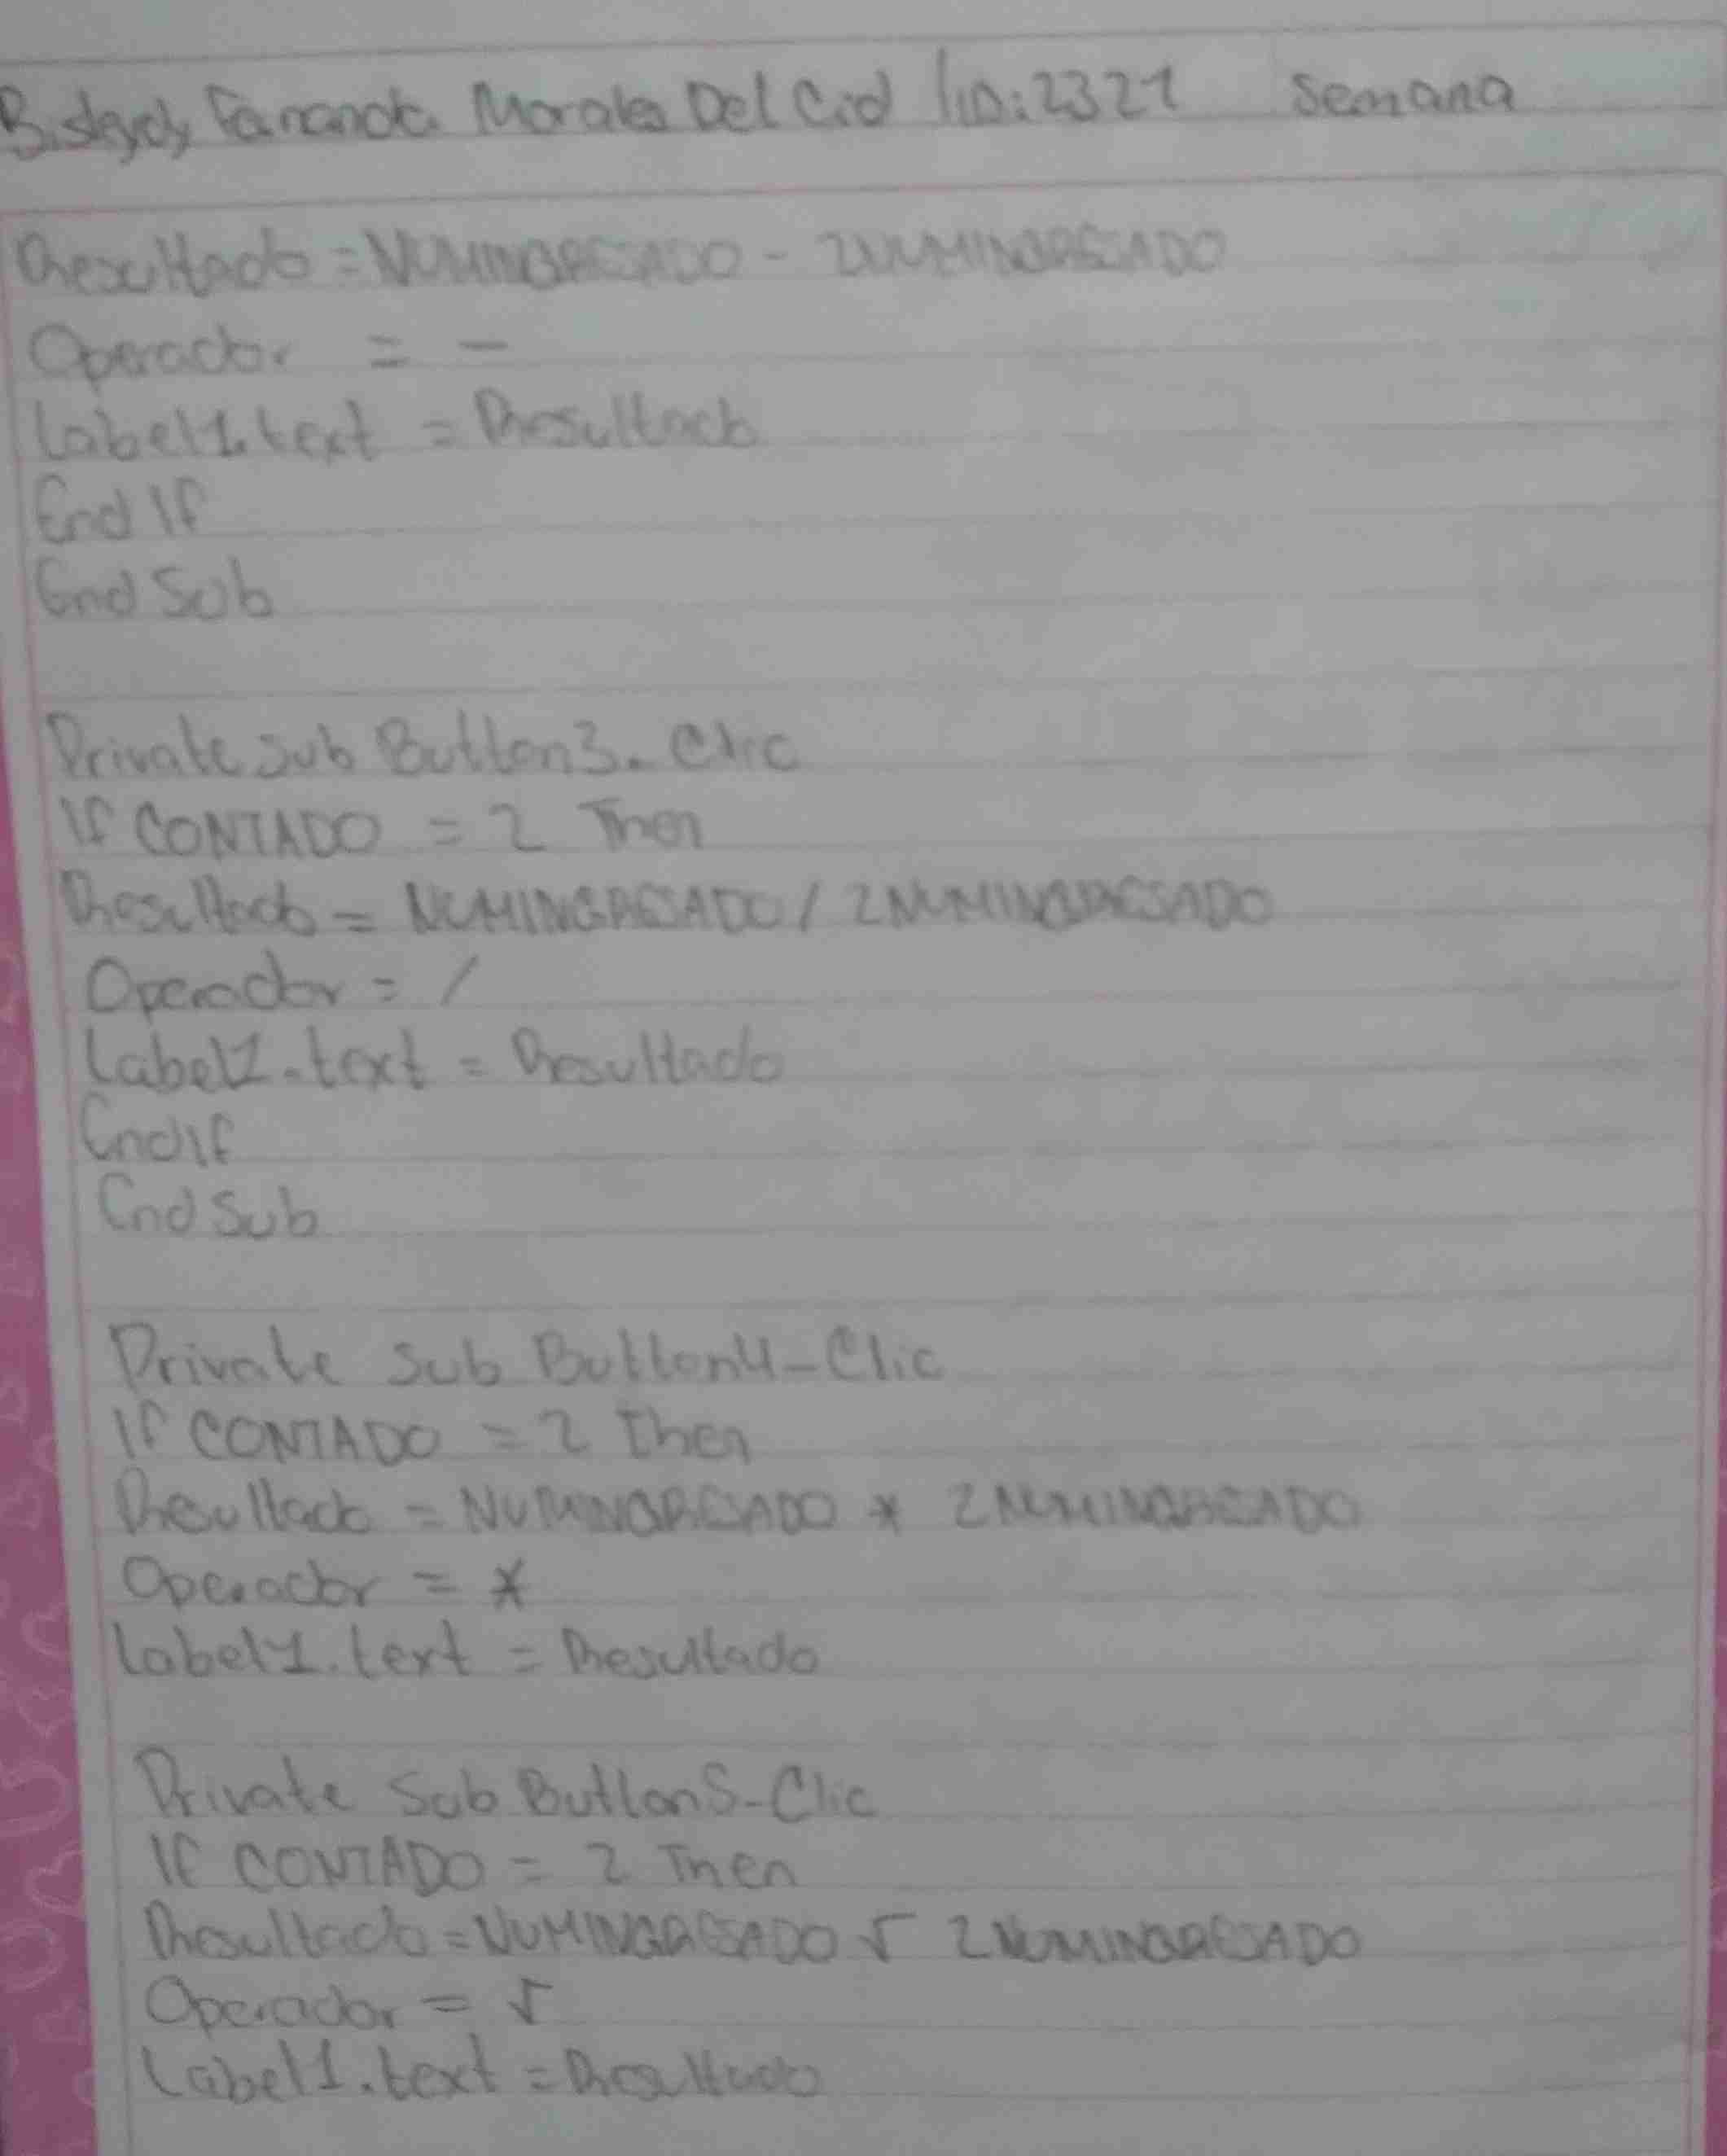 Morales Del Cid ID:2321 Semana
Resultado = NUMINGRESADO - 2NUMINGRESADO
Operador = -
Label1.text = Resultado
End If
End Sub
Private sub Button3. Clic
If CONTADO = 2 Then
Resultado = NUMINGRESADO / 2NUMINGRESADO
Operador = /
Label1.text = Resultado
End if
End Sub
Private Sub Button4-Clic
If CONTADO = 2 Then
Resultado = NUMINGRESADO * 2NUMINGRESADO
Operador = *
Label1.text = Resultado
Private Sub Button5-Clic
If CONTADO = 2 Then
Resultado = NUMINGRESADO √ 2NUMINGRESADO
Operador = √
Label1.text = Resultado